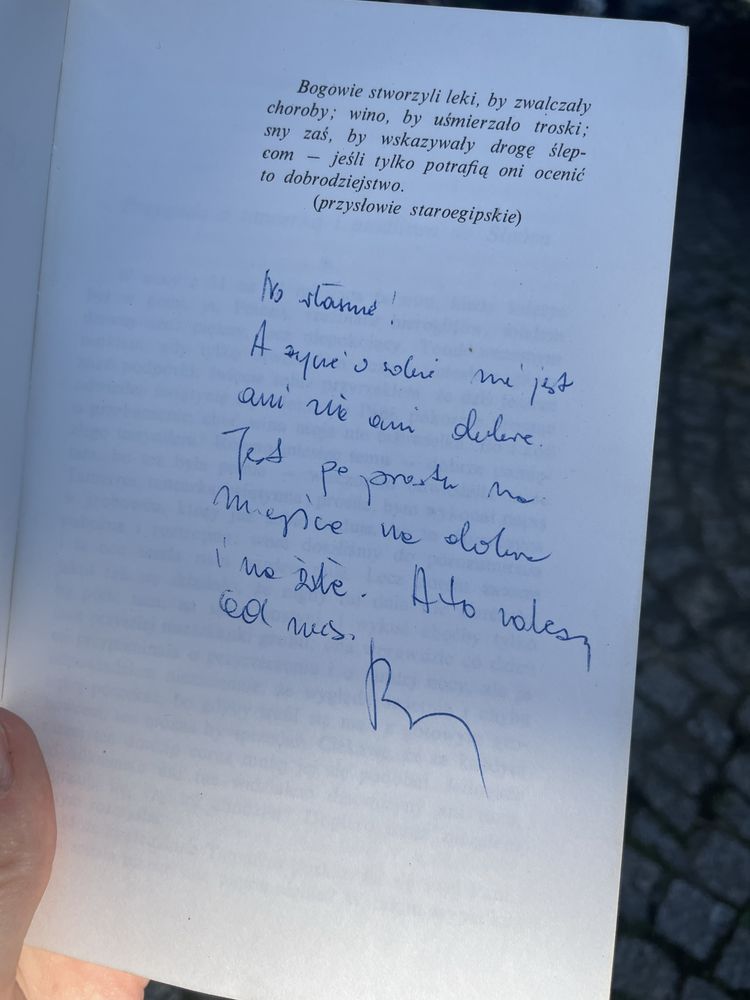 Bogowie stworzyli leki, by zwalczały
choroby; wino, by uśmierzało troski;
sny zaś, by wskazywały drogę ślep-
com — jeśli tylko potrafią oni ocenić
to dobrodziejstwo.
(przysłowie staroegipskie)
No właśnie!
A życie o sobie nie jest
ani złe ani dobre.
Jest po prostu na
miejsce na dobre
i na złe. A to zależy
od nas.